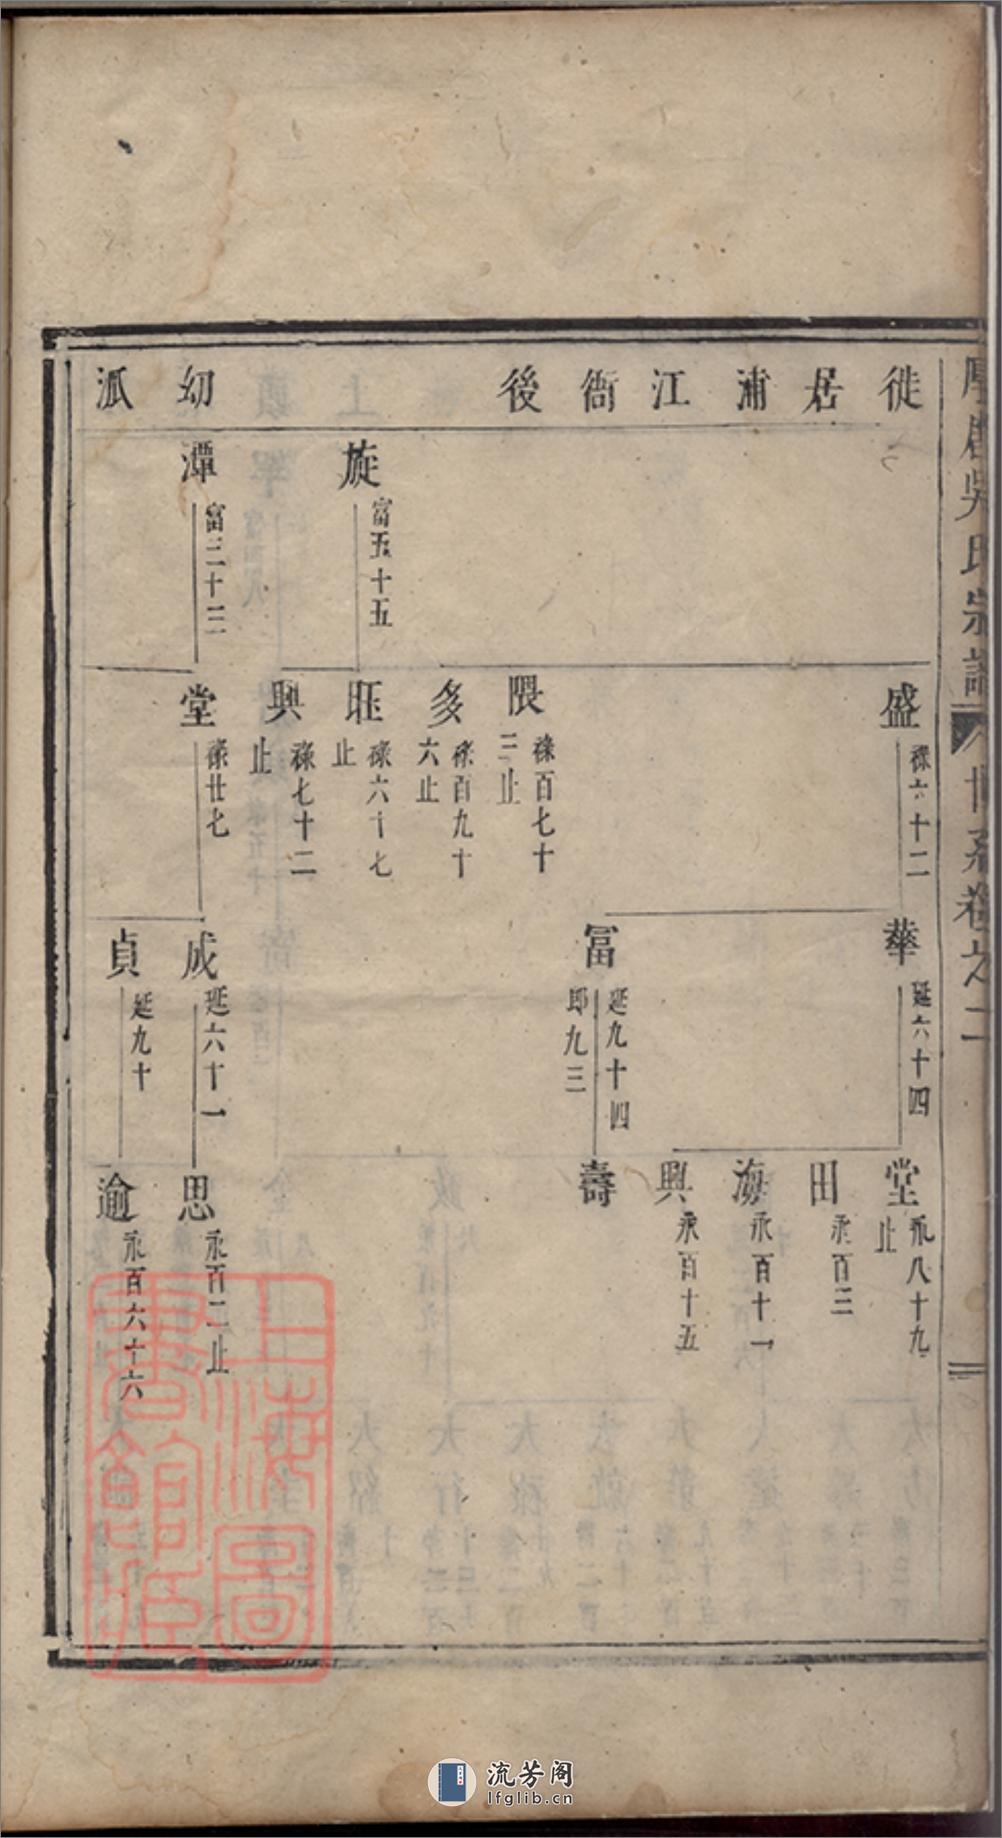 厚唐吳氏宗譜 世系卷之二
徙居浦江衙後
幼泒
旋 富五十五
潭 富三十三
盛 祿六十二
隈 祿百七十三止
多 祿百九十六止
旺 祿六十七止
興 祿七十二止
堂 祿廿七
華 延六十四
冨 延九十四 郎九三
成 延六十一
貞 延九十
堂 永八十九止
田 永百三
海 永百十一
興 永百十五
壽
思 永百二止
逾 永百六十六
上海圖書館藏
流芳阁
lfglib.cn